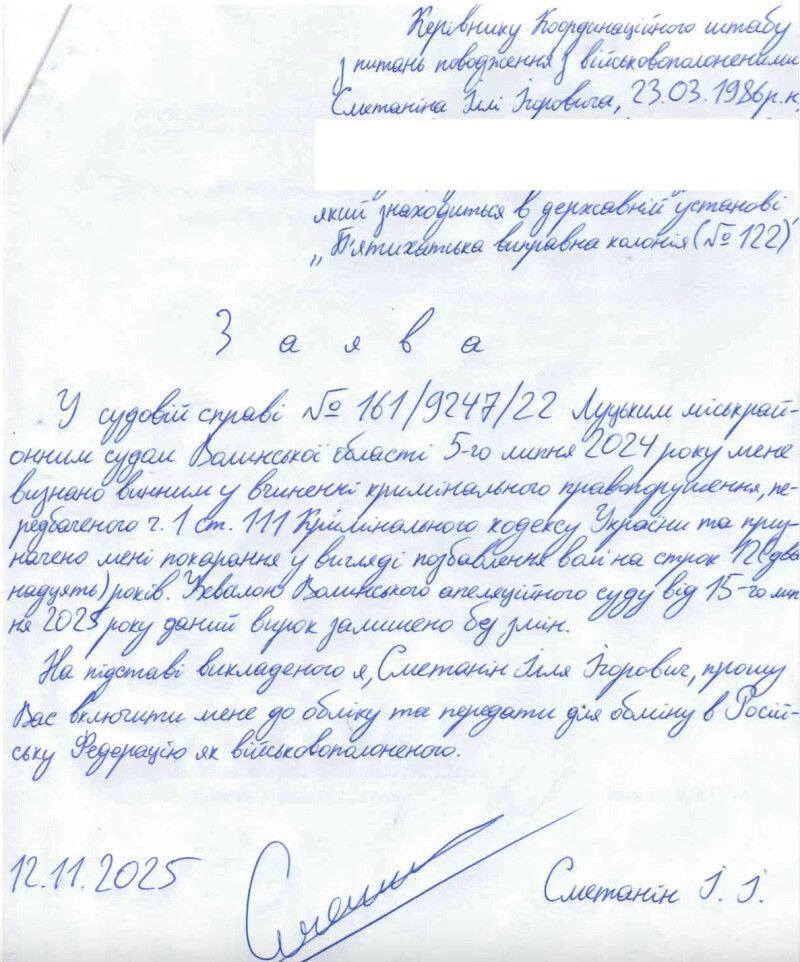 Керівнику Координаційного штабу
з питань поводження з військовополоненими
Сметаніна Іллі Ігоровича, 23.03.1986р.н,
який знаходиться в державній установі
„П'ятихатська виправна колонія (№122)"
Заява
У судовій справі № 161/9247/22 Луцьким міськрай-
онним судом Волинської області 5-го липня 2024 року мене
визнано винним у вчиненні кримінального правопорушення, пе-
редбаченого ч. 1 ст. 111 Кримінального кодексу України та приз-
начено мені покарання у вигляді позбавлення волі на строк 12 (два
надцять) років. Ухвалою Волинського апеляційного суду від 15-го лип
ня 2025 року даний вирок залишено без змін.
На підставі викладеного я, Сметанін Ілля Ігорович, прошу
Вас включити мене до обліку та передати для обміну в Росій-
ську Федерацію як військовополоненого.
12.11.2025 Сметанін І. І.